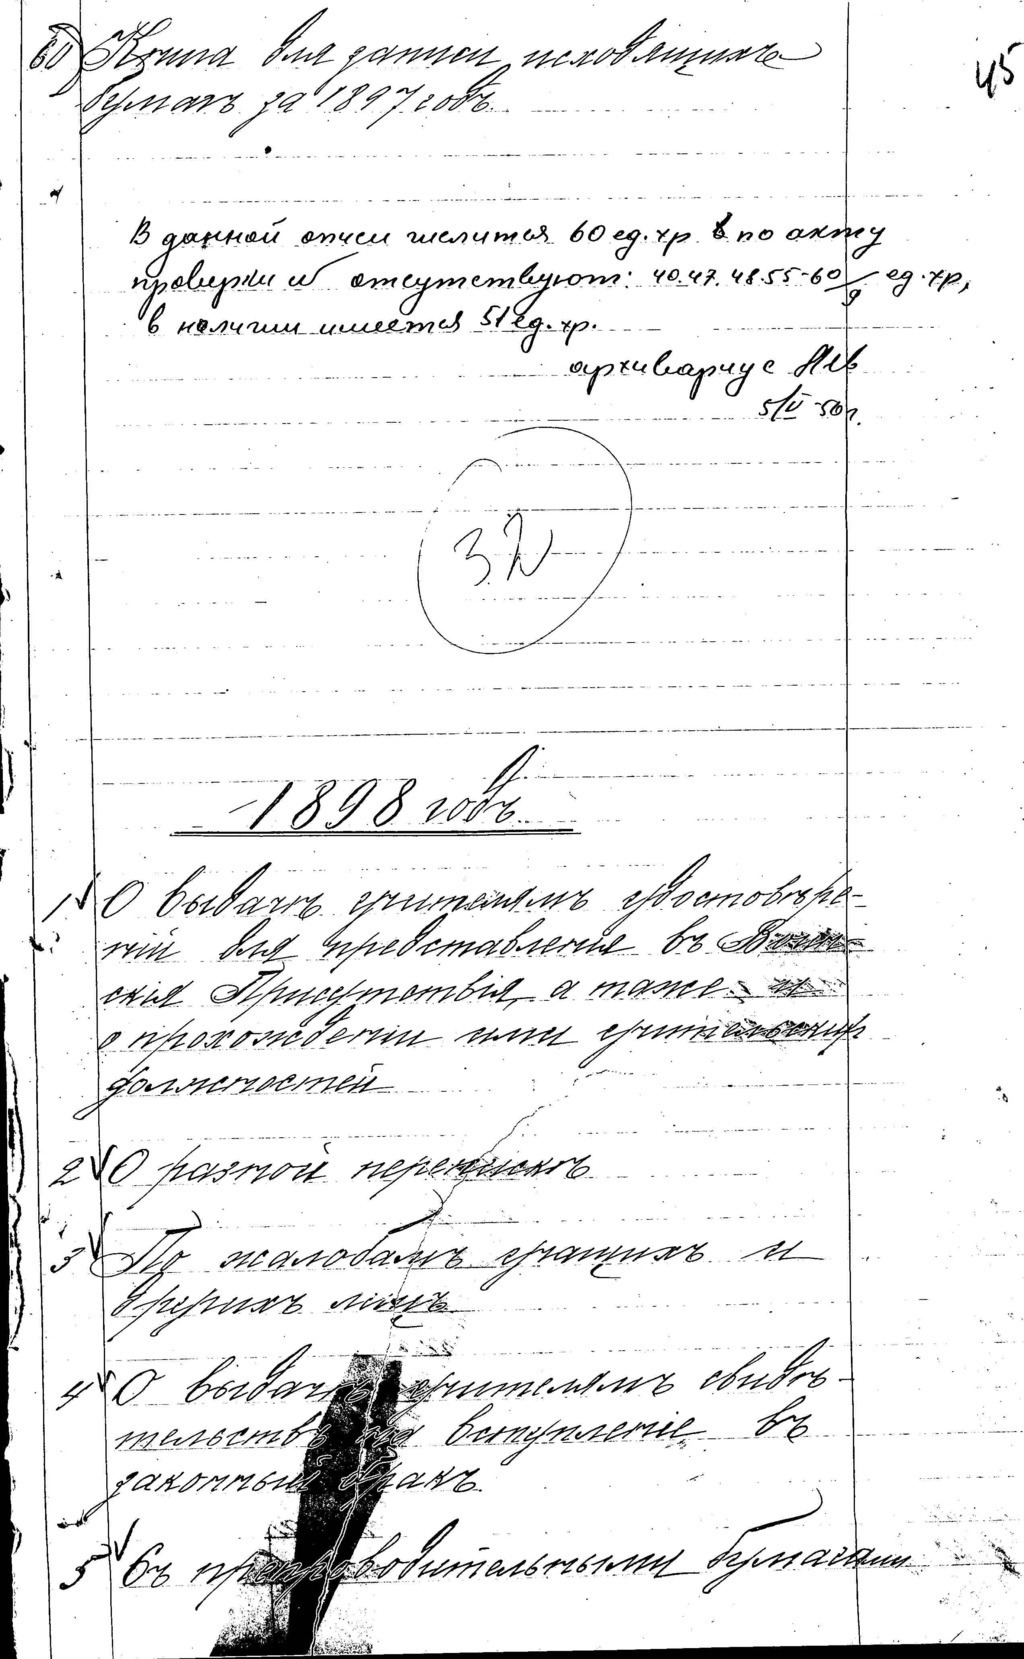 45
60 Книга для записи исходящихъ
бумагъ за 1897 годъ.
В данной описи числится 60 ед. хр. по акту
проверки отсутствуют: 40.47.48.55-60/9 ед. хр,
в наличии имеется 51 ед. хр.
архивариус
5/V-56 г.
32
1898 годъ.
1 О выдачѣ учителямъ удостовѣре-
ній для представленія въ Воин-
скія Присутствія, а также и
о прохожденіи ими учительскихъ
должностей
2 О разной перепискѣ
3 По жалобамъ учащихъ и
другихъ лицъ
4 О выдачѣ учителямъ свидѣ-
тельствъ на вступленіе въ
законный бракъ.
5 Съ препроводительными бумагами